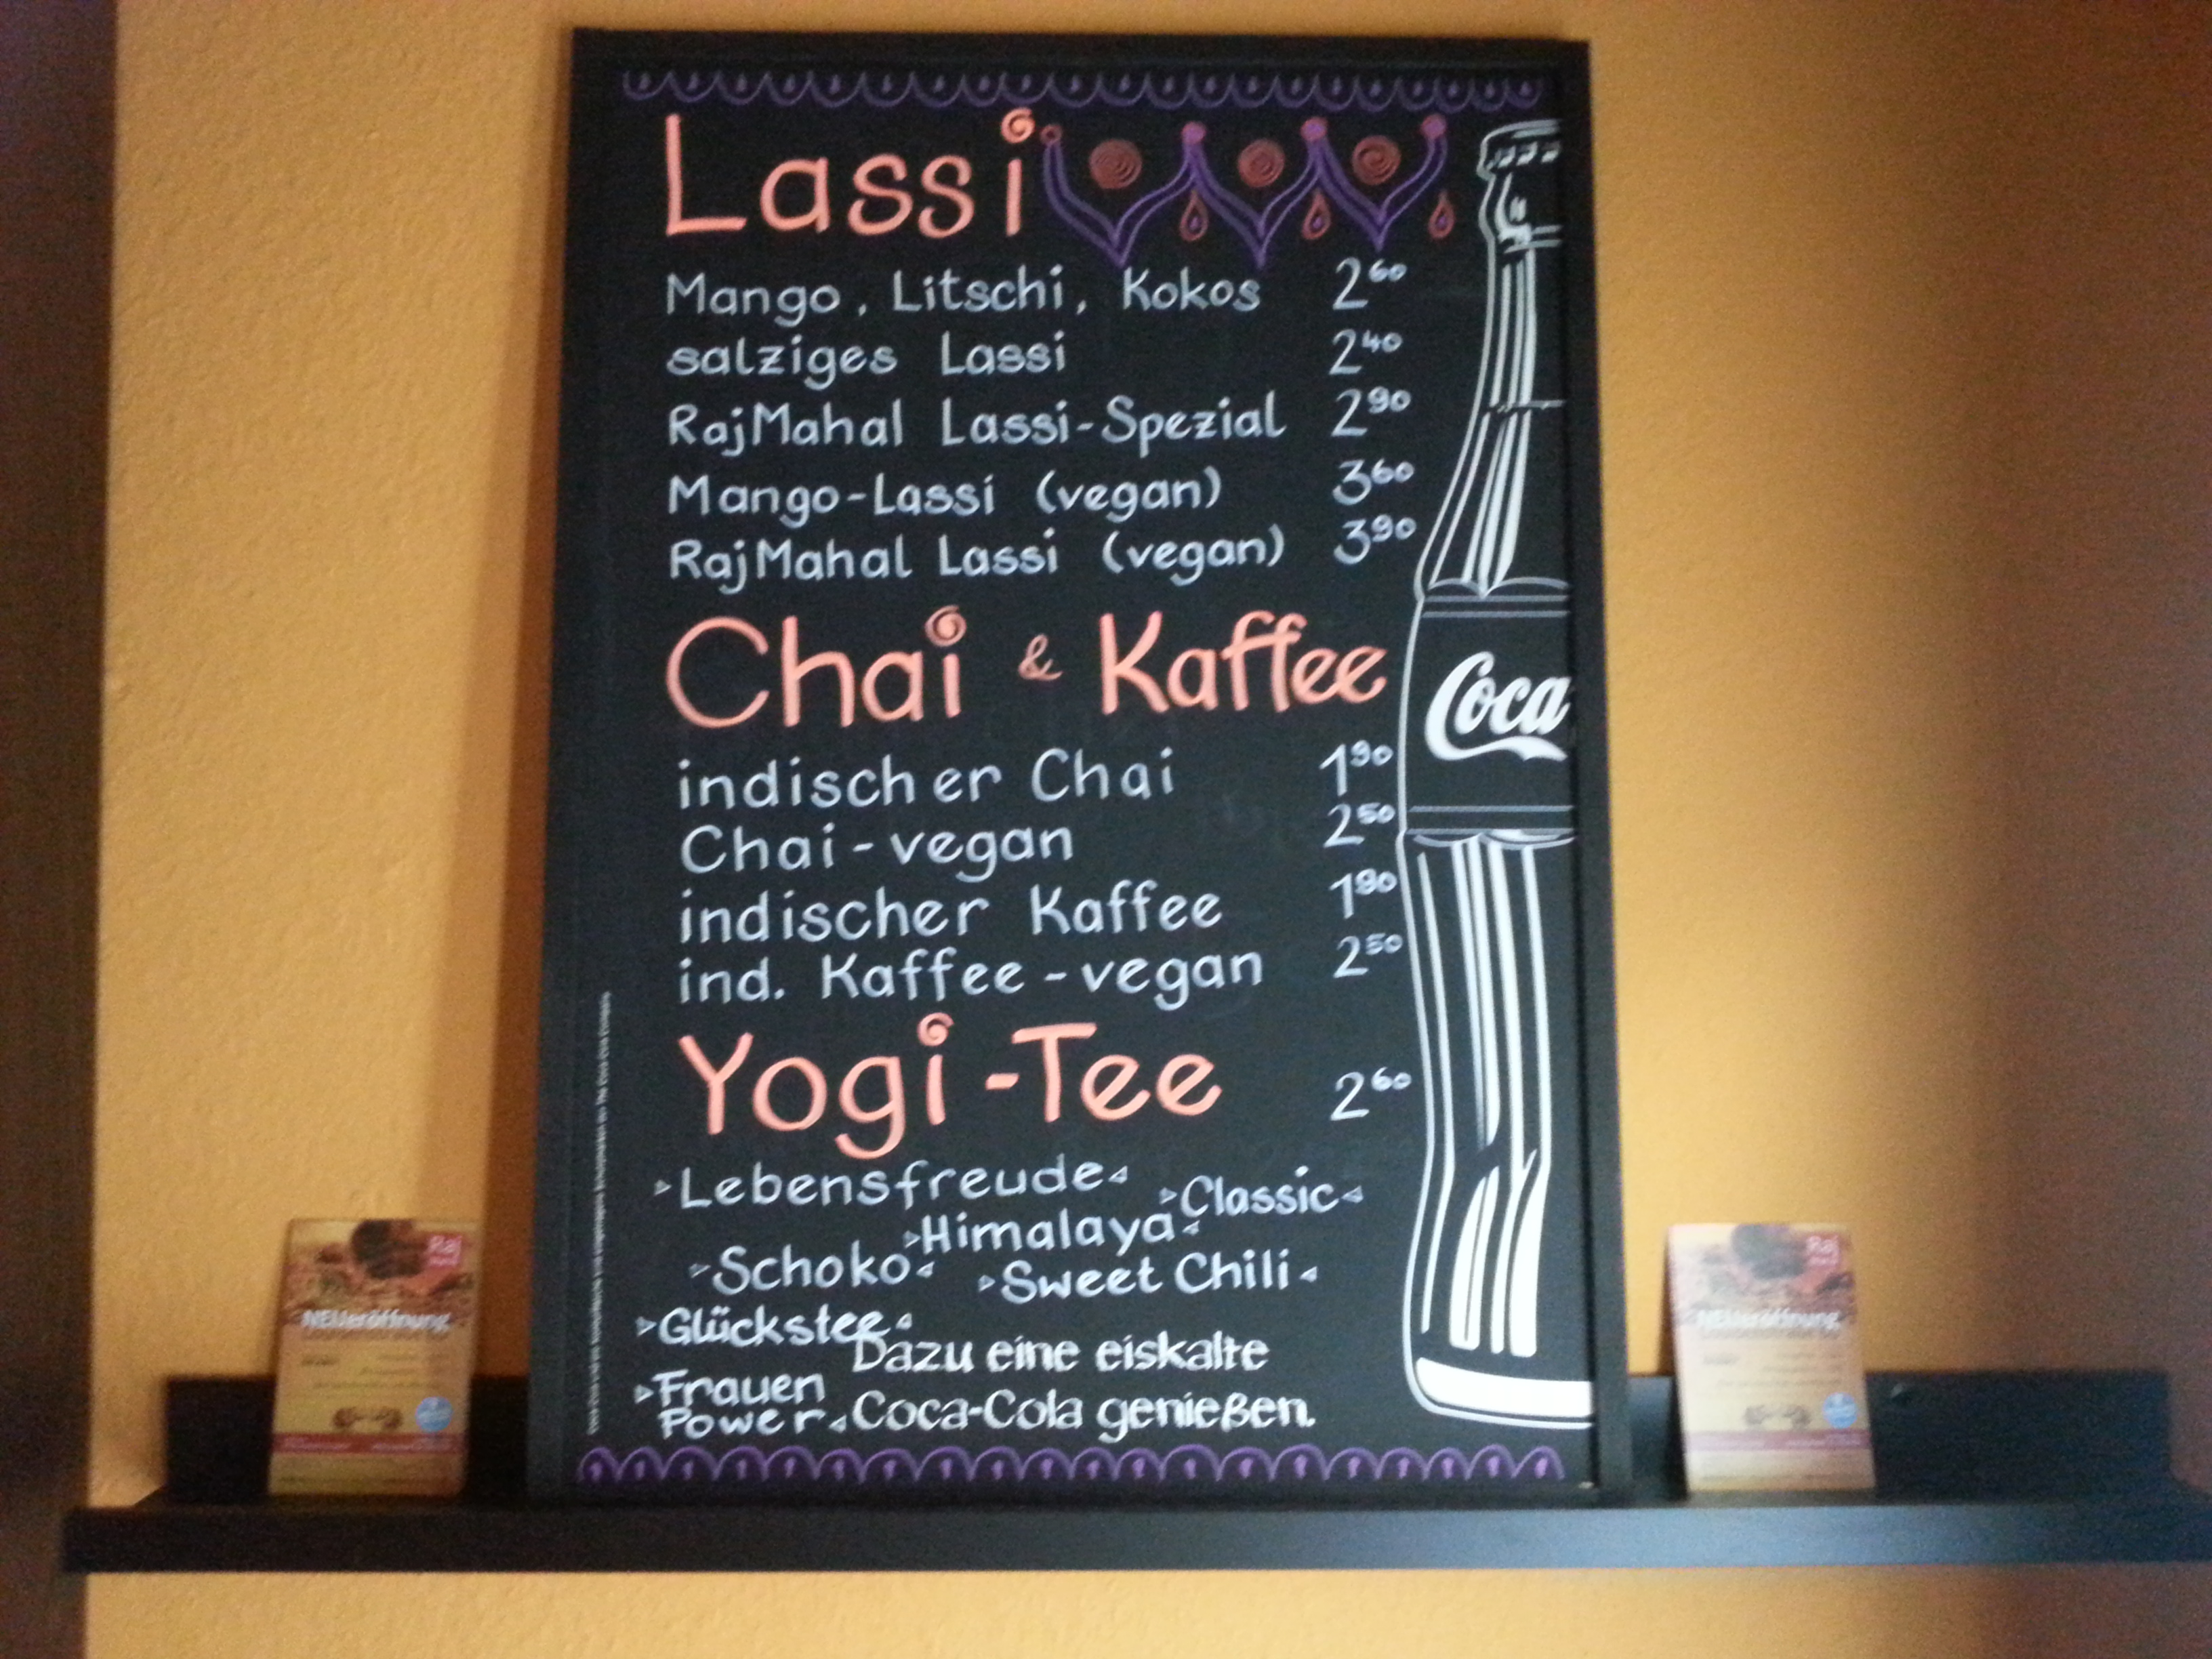 Lassi
Mango, Litschi, Kokos 2 60
salziges Lassi 2 40
RajMahal Lassi-Spezial 2 90
Mango-Lassi (vegan) 3 60
RajMahal Lassi (vegan) 3 90
Chai & Kaffee
indischer Chai 1 90
Chai-vegan 2 50
indischer Kaffee 1 90
ind. Kaffee-vegan 2 50
Yogi-Tee 2 60
Lebensfreude
Classic
Himalaya
Schoko
Sweet Chili
Glückstee
Frauen
Power
Dazu eine eiskalte
Coca-Cola genießen.
Coca
Raj
NEUeröffnung
Raj
NEUeröffnung